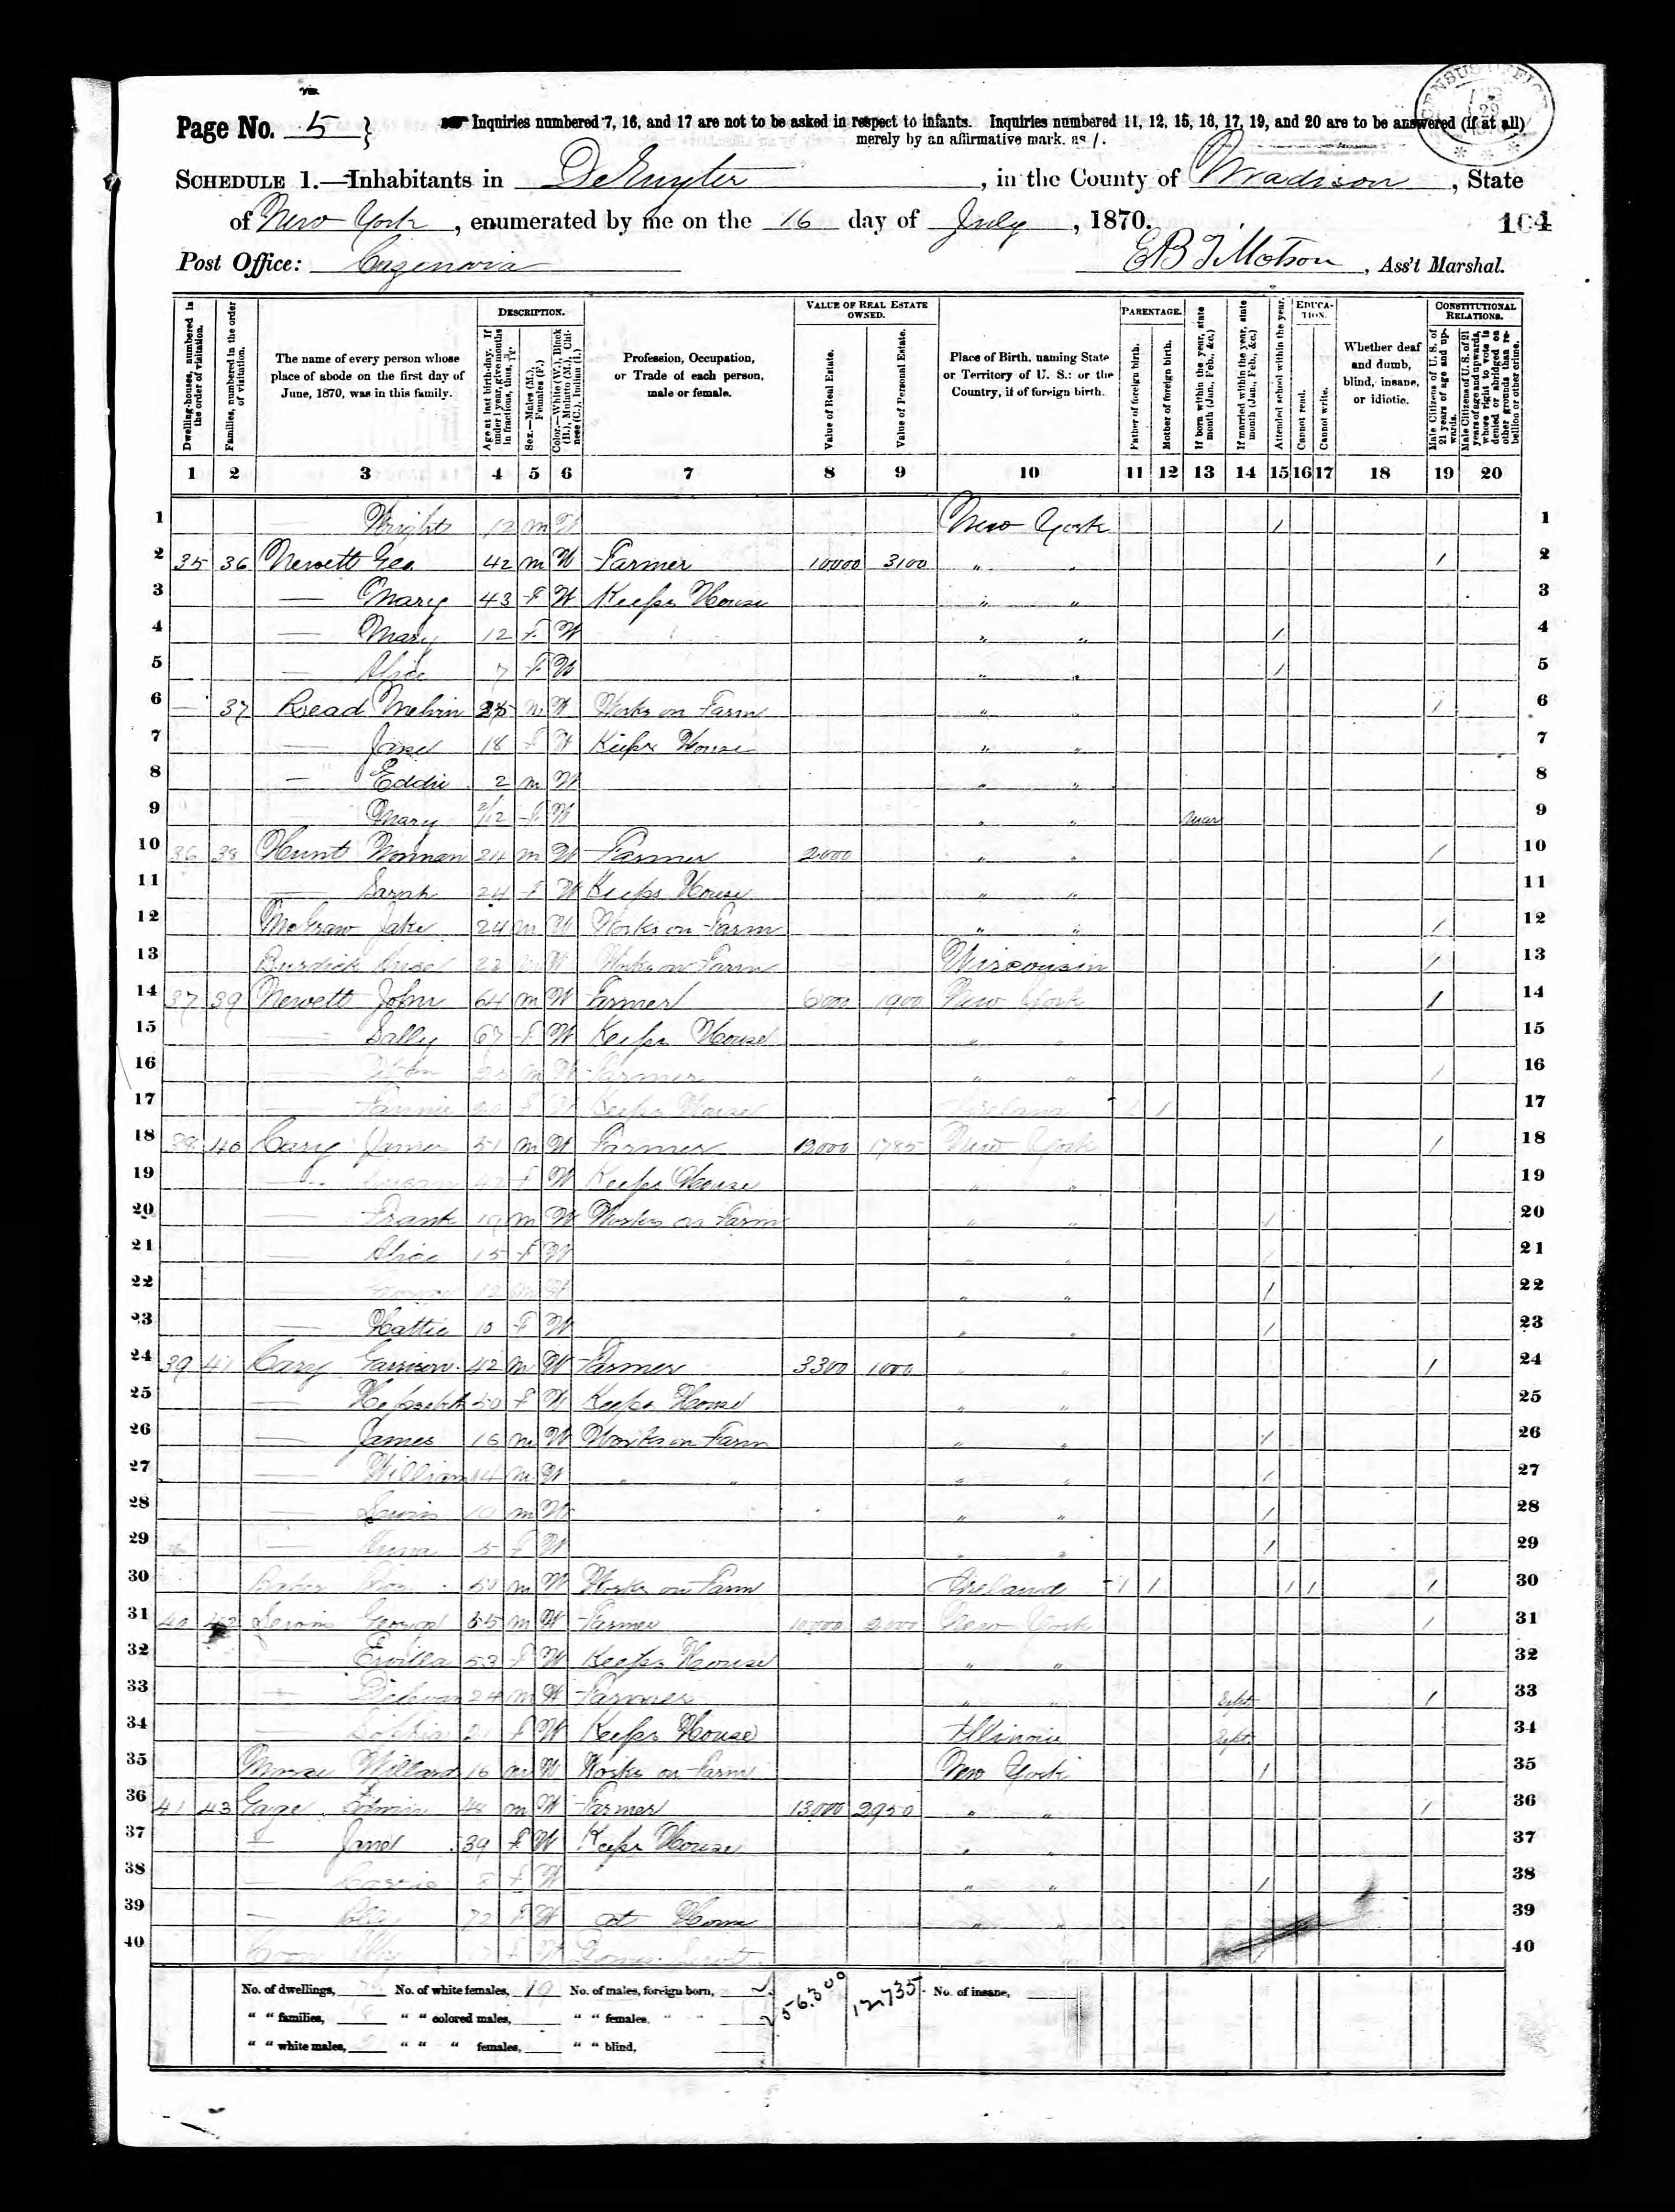 Page No. 5 }
Inquiries numbered 7, 16, and 17 are not to be asked in respect to infants. Inquiries numbered 11, 12, 15, 16, 17, 19, and 20 are to be answered (if at all)
merely by an affirmative mark, as /.
SCHEDULE 1.—Inhabitants in DeRuyter, in the County of Madison, State
of New York, enumerated by me on the 16 day of July, 1870.
104
Post Office: Cazenovia
, Ass't Marshal.
Dwelling-houses, numbered in the order of visitation.
Families, numbered in the order of visitation.
The name of every person whose place of abode on the first day of June, 1870, was in this family.
DESCRIPTION.
Age at last birth-day. If under 1 year, give months in fractions, thus, 3/12.
Sex.—Males (M.), Females (F.)
Color.—White (W.), Black (B.), Mulatto (M.), Chinese (C.), Indian (I.)
Profession, Occupation, or Trade of each person, male or female.
VALUE OF REAL ESTATE OWNED.
Value of Real Estate.
Value of Personal Estate.
Place of Birth, naming State or Territory of U. S.; or the Country, if of foreign birth.
PARENTAGE.
Father of foreign birth.
Mother of foreign birth.
If born within the year, state month (Jan., Feb., &c.)
If married within the year, state month (Jan., Feb., &c.)
Attended school within the year.
EDUCATION.
Cannot read.
Cannot write.
Whether deaf and dumb, blind, insane, or idiotic.
CONSTITUTIONAL RELATIONS.
Male Citizens of U. S. of 21 years of age and upwards.
Male Citizens of U. S. of 21 years of age and upwards, whose right to vote is denied or abridged on other grounds than rebellion or other crime.
1 2 3 4 5 6 7 8 9 10 11 12 13 14 15 16 17 18 19 20
1 — Wright 12 m W New York / 1
2 35 36 Newett Geo 42 m W Farmer 10000 3100 " " / 2
3 — Mary 43 F W Keeps House " " 3
4 — Mary 12 F W " " / 4
5 — Alice 7 F W " " / 5
6 — 37 Read Melvin 25 m W Works on Farm " " / 6
7 — Jane 18 F W Keeps House " " 7
8 — Eddie 2 m W " " 8
9 Mary 2/12 F W " " Mar 9
10 36 38 Hunt Norman 24 m W Farmer 2000 " " / 10
11 — Sarah 24 F W Keeps House " " 11
12 McGraw Jake 24 m W Works on Farm " " / 12
13 Burdick 22 m W Works on Farm Wisconsin / 13
14 37 39 Newett John 64 m W Farmer 6000 1900 New York / 14
15 — Sally 67 F W Keeps House " " 15
16 — m W Farmer " " / 16
17 — Fannie F W Keeps House Ireland / / 17
18 38 40 Cary James 51 m W Farmer 1785 New York / 18
19 — F W Keeps House " " 19
20 — Frank 19 m W Works on Farm " " / 20
21 — Alice 15 F W " " / 21
22 — 12 m W " " / 22
23 — Hattie 10 F W " " / 23
24 39 41 Cary Garrison 42 m W Farmer 3300 1000 " " / 24
25 — 50 F W Keeps House " " 25
26 — James 16 m W Works on Farm " " / 26
27 — William 14 m W " " " " / 27
28 — Lewis 10 m W " " / 28
29 — Anna 5 F W " " / 29
30 50 m W Works on Farm Ireland / / / / / 30
31 40 42 Lewis George 55 m W Farmer 10000 2000 New York / 31
32 Ervilla 53 F W Keeps House " " 32
33 — 24 m W Farmer " " Sept / 33
34 — F W Keeps House Illinois Sept 34
35 Willard 16 m W Works on Farm New York / 35
36 41 43 Gage Edwin 48 m W Farmer 13000 2950 " " / 36
37 — Jane 39 F W Keeps House " " 37
38 — Carrie 8 F W " " / 38
39 — Polly 72 F W at Home " " 39
40 F W 40
No. of dwellings, No. of white females, 19 No. of males, foreign born, 56300 12735 No. of insane,
" " families, " " colored males, " " females, " "
" " white males, " " " females, " " blind,